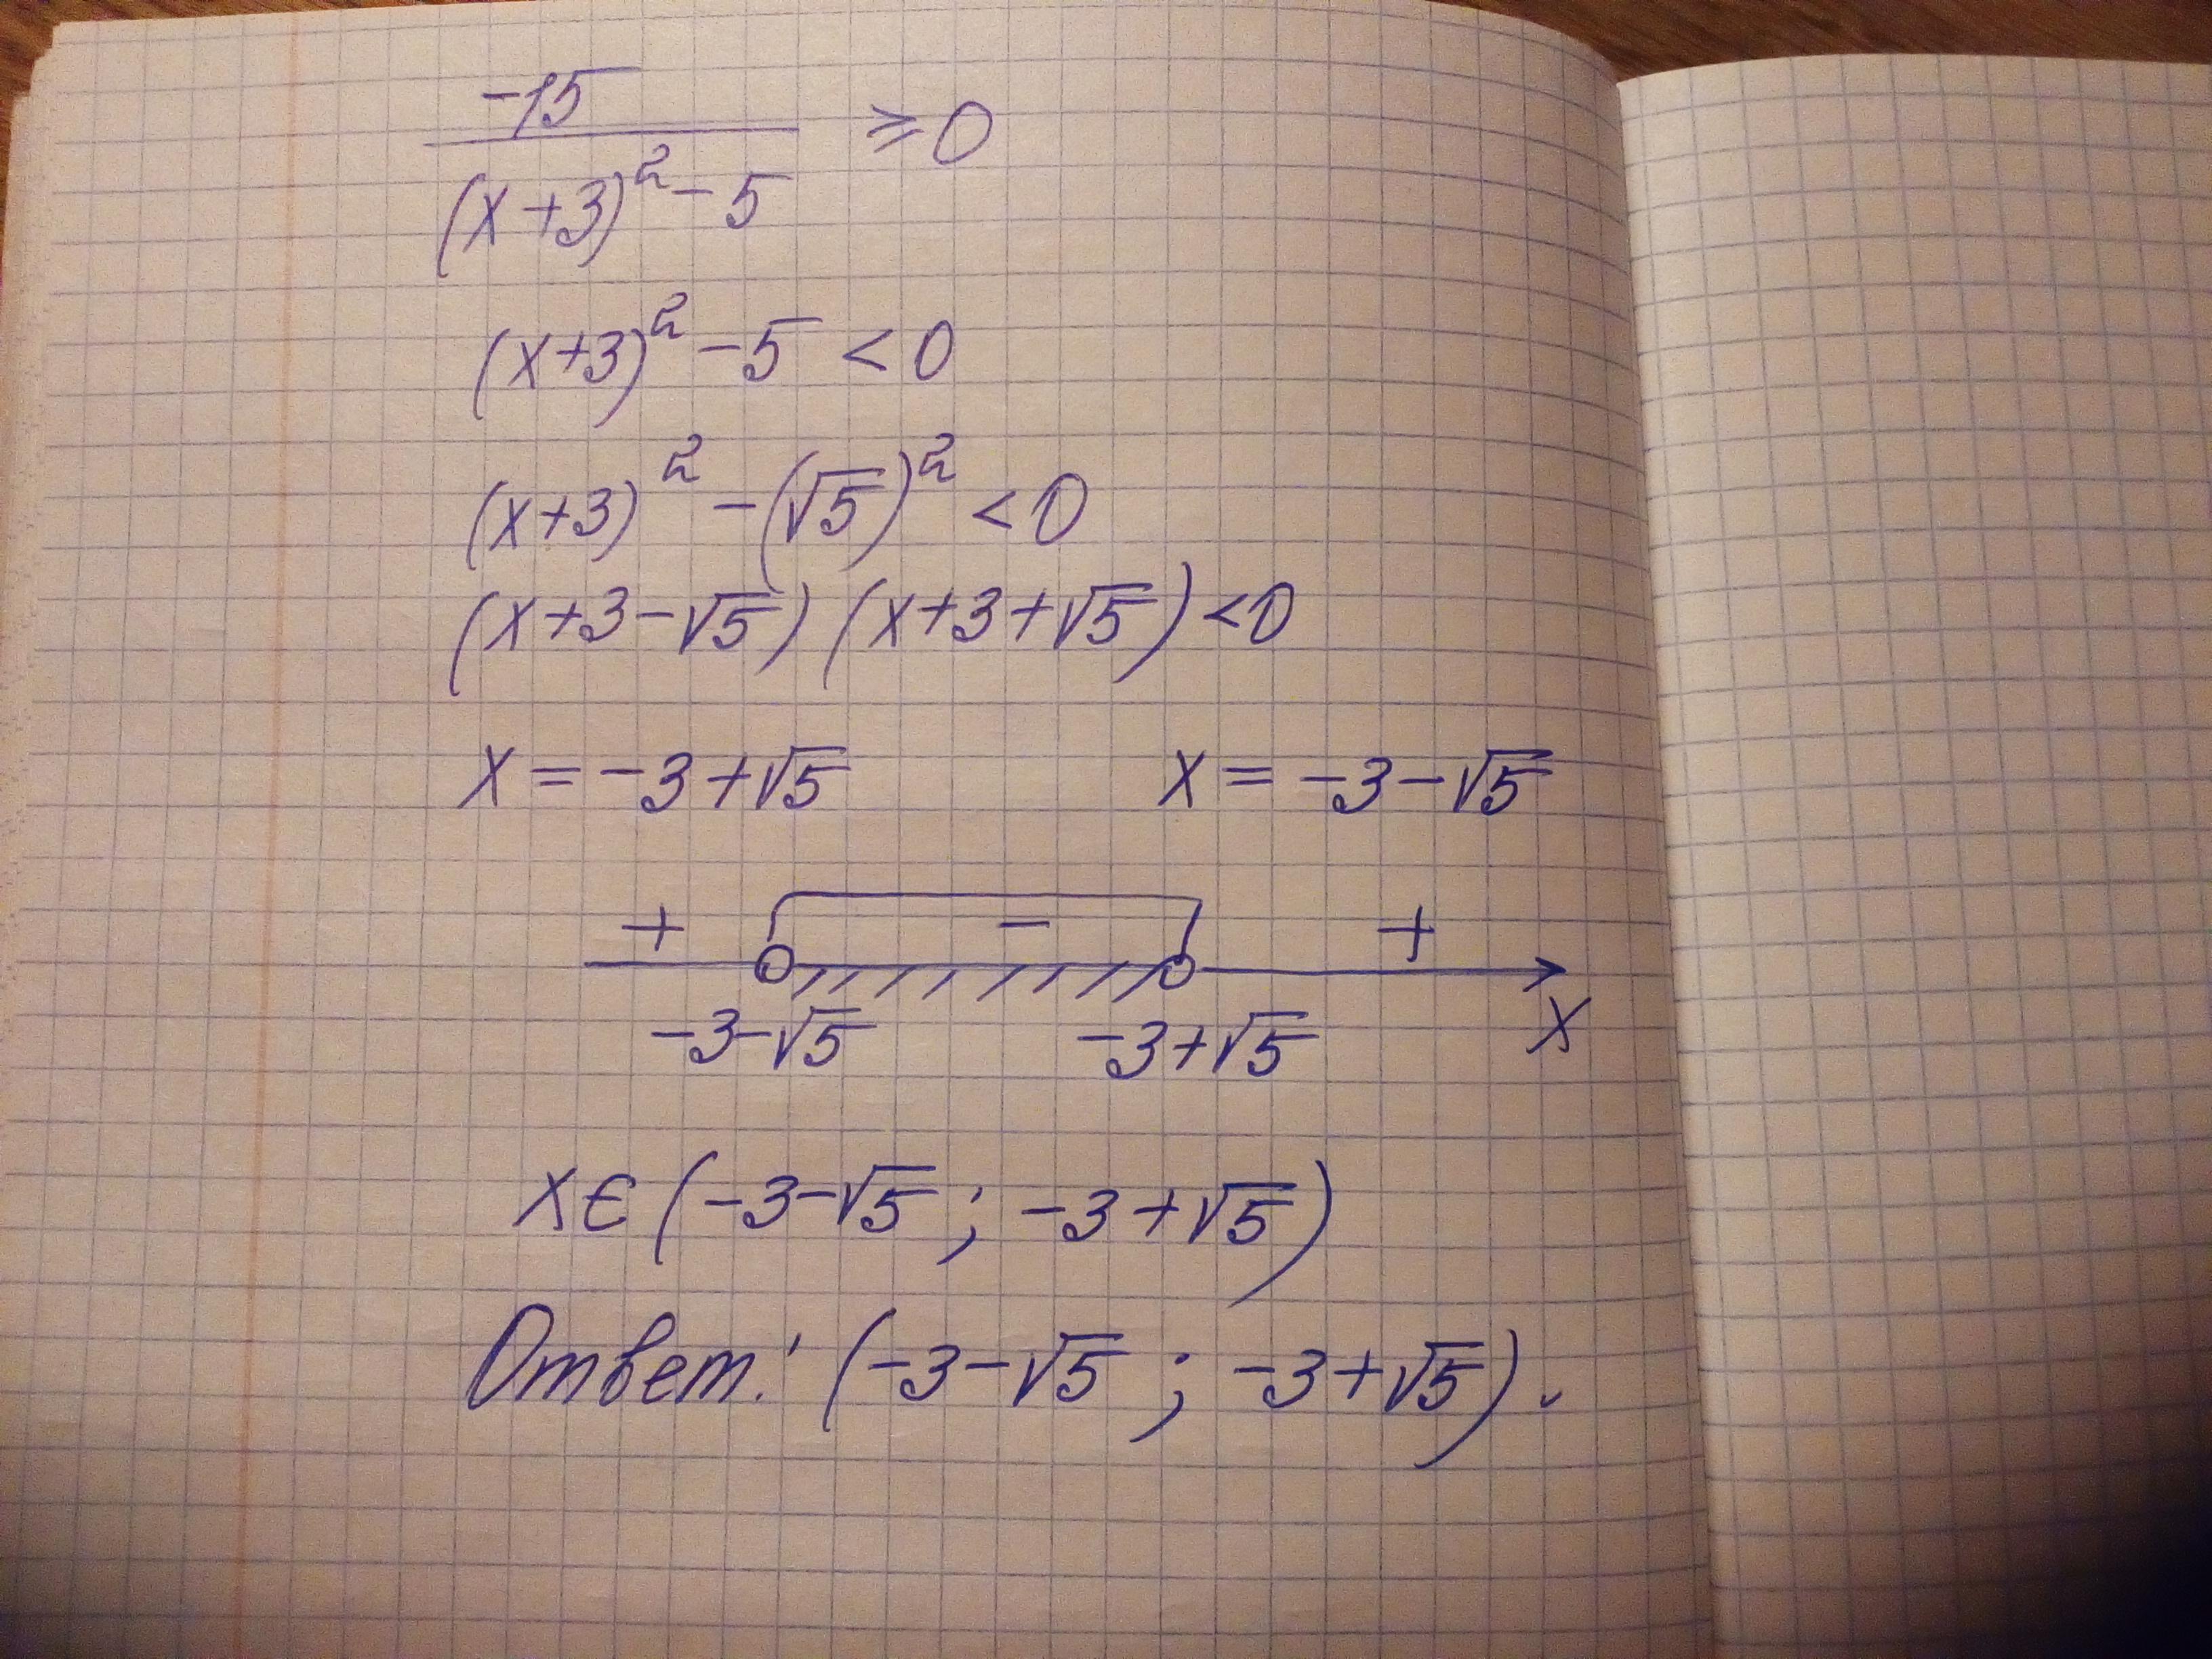 -15 / (x+3)² - 5 ⩾ 0
(x+3)² - 5 < 0
(x+3)² - (√5)² < 0
(x+3-√5) (x+3+√5) < 0
x = -3+√5 x = -3-√5
+ - +
-3-√5 -3+√5 x
x ∈ (-3-√5 ; -3+√5)
Ответ: (-3-√5 ; -3+√5).